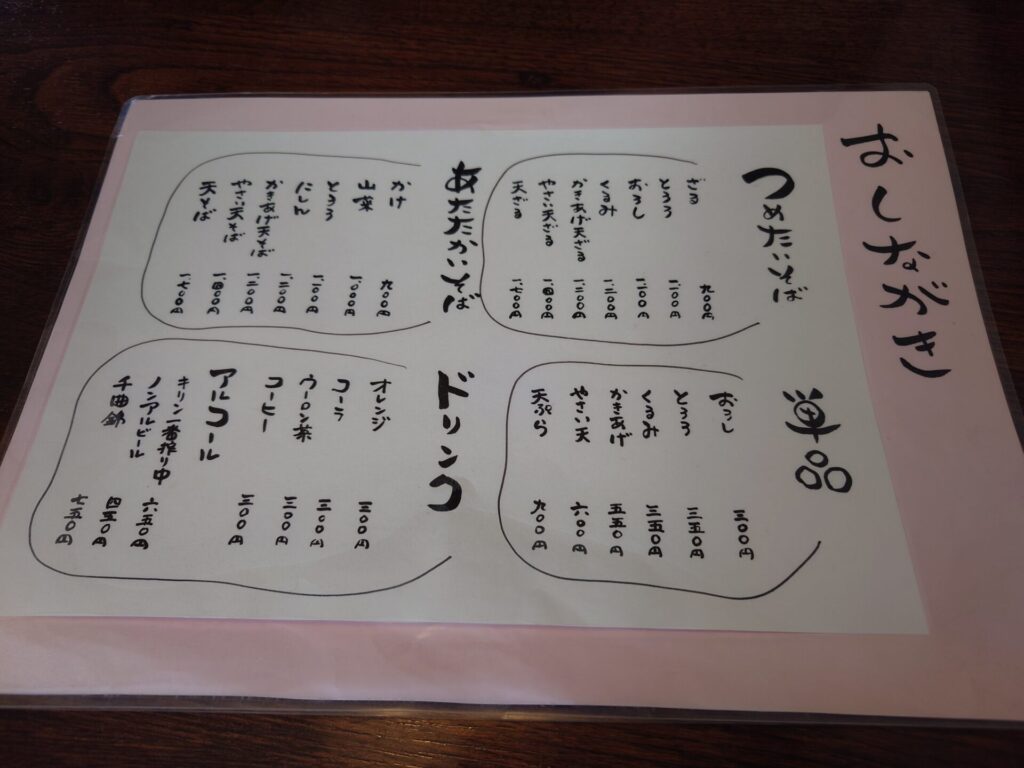 おしながき
つめたいそば
ざる 九〇〇円
とろろ 一、一〇〇円
おろし 一、一〇〇円
くるみ
かきあげ天ざる
やさい天ざる 一、四〇〇円
天ざる 一、七〇〇円
単品
おろし 三〇〇円
とろろ 三五〇円
くるみ 三五〇円
かきあげ 五五〇円
やさい天 六〇〇円
天ぷら 九〇〇円
あたたかいそば
かけ 九〇〇円
山菜 一、〇〇〇円
とろろ 一、一〇〇円
にしん
かきあげ天そば
やさい天そば 一、四〇〇円
天そば 一、七〇〇円
ドリンク
オレンジ 三〇〇円
コーラ 三〇〇円
ウーロン茶 三〇〇円
コーヒー 三〇〇円
アルコール
キリン一番搾り中 六五〇円
ノンアルビール 四五〇円
千曲錦 七五〇円